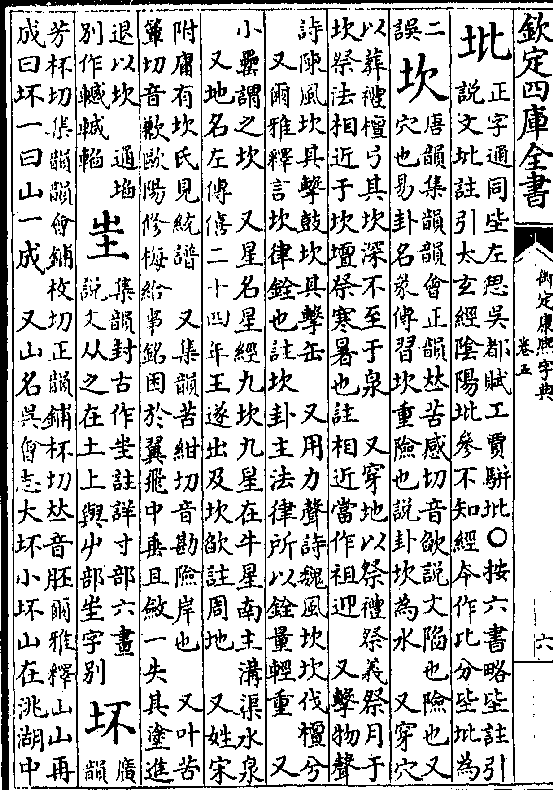 欽定四庫全書
御定康熙字典
卷五
六
坒
正字通同坒左思吳都賦工賈駢坒〇按六書略坒註引
說文坒註引太玄經陰陽坒參不知經本作比分坒坒為
二
誤
坎
唐韻集韻韻會正韻𠀤苦感切音欿說文陷也險也又
穴也易卦名彖傳習坎重險也說卦坎為水 又穿穴
以葬禮檀弓其坎深不至于泉 又穿地以祭禮祭義祭月于
坎祭法相近于坎壇祭寒暑也註相近當作祖迎 又擊物聲
詩陳風坎其擊鼓坎其擊缶 又用力聲詩魏風坎坎伐檀兮
又爾雅釋言坎律銓也註坎卦主法律所以銓量輕重 又
小罍謂之坎 又星名星經九坎九星在牛星南主溝渠水泉
又地名左傳僖二十四年王遂出及坎欿註周地 又姓宋
附庸有坎氏見統譜 又集韻苦紺切音勘險岸也 又叶苦
簟切音歉歐陽修梅給事銘困於翼飛中垂且斂一失其塗進
退以坎 通埳
別作轗輱輡
㞷
集韻封古作㞷註詳寸部六畫
說文从之在土上與屮部㞷字別
坏
廣
韻
芳杯切集韻韻會鋪枚切正韻鋪杯切𠀤音胚爾雅釋山山再
成曰坏一曰山一成 又山名吳會志大坏小坏山在洮湖中